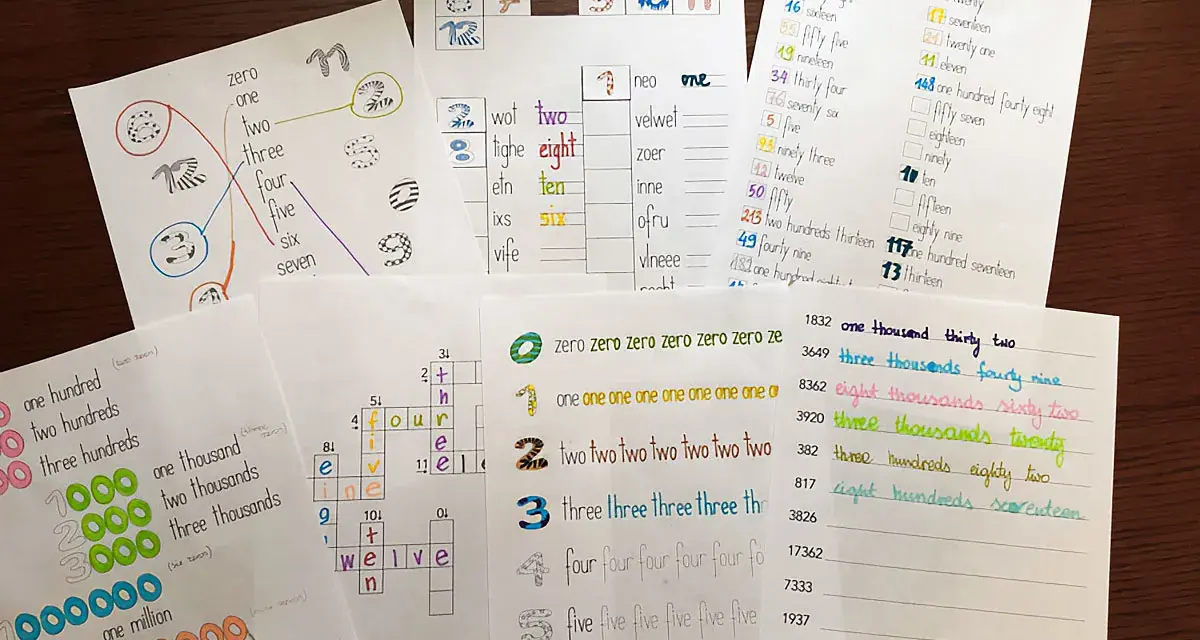 zero
one
two
three
four
five
six
seven
11
6
2
12
5
0
3
9
12
1 neo one
2 wot two
8 tighe eight
etn ten
ixs six
vife
velwet
zoer
inne
ofru
vlneee
16 sixteen
55 fifty five
19 nineteen
34 thirty four
76 seventy six
5 five
93 ninety three
12 twelve
50 fifty
213 two hundreds thirteen
49 fourly nine
17 seventeen
21 twenty one
11 eleven
148 one hundred fourty eight
fifty seven
eighteen
ninety
10 ten
fifteen
eighty nine
117 one hundred seventeen
13 thirteen
one hundred
two hundreds
three hundreds
1000 one thousand
2000 two thousands
3000 three thousands
1000000
one million
3↓
2 t
h
5↓
4 four r
i
e
8↓
v
11 e l e
e
ine
g
10↓
0↓
t
welve
n
0 zero zero zero zero zero ze
1 one one one one one one one o
2 two two two two two two
3 three three three three thr
4 four four four four four fo
5 five five five five five
1832 one thousand thirty two
3649 three thousands fourty nine
8362 eight thousands sixty two
3920 three thousands twenty
382 three hundreds eighty two
817 eight hundreds seventeen
3826
17362
7333
1937